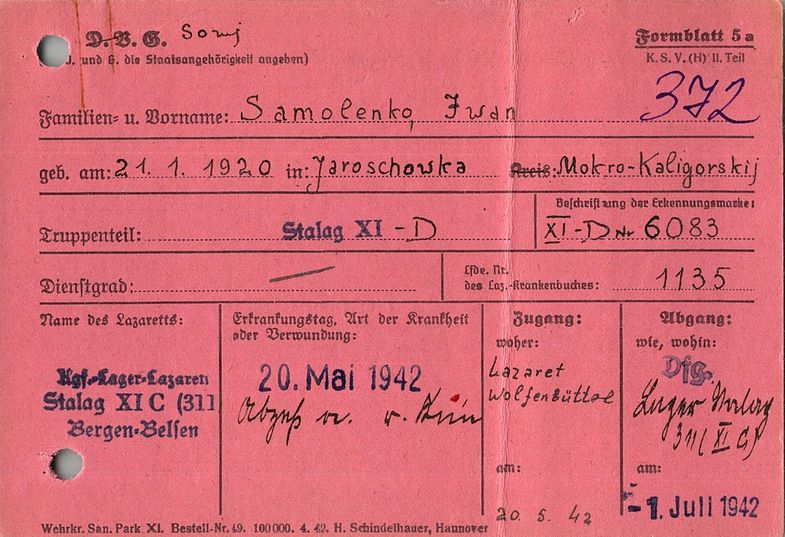 D. B. G. Sowj
(D. und G. die Staatsangehörigkeit angeben)
Formblatt 5a
K. S. V. (H) II. Teil
372
Familien- u. Vorname: Samolenko, Iwan
geb. am: 21. 1. 1920 in: Jaroschowka Kreis: Mokro-Kaligorskij
Truppenteil: Stalag XI - D
Beschriftung der Erkennungsmarke:
XI-D Nr 6083
Dienstgrad: —
Lfde. Nr.
des Laz.-Krankenbuches: 1135
Name des Lazaretts:
Kgf.-Lager-Lazarett
Stalag XI C (311
Bergen-Belsen
Erkrankungstag, Art der Krankheit
oder Verwundung:
20. Mai 1942
Abzeß a. r.
Zugang:
woher:
Lazaret
Wolfenbüttel
am:
20. 5. 42
Abgang:
wie, wohin:
Dfg.
Lager Stalag
311 (XI C)
am:
-1. Juli 1942
Wehrkr. San. Park XI. Bestell-Nr. 49. 100000. 4. 42. H. Schindelhauer, Hannover